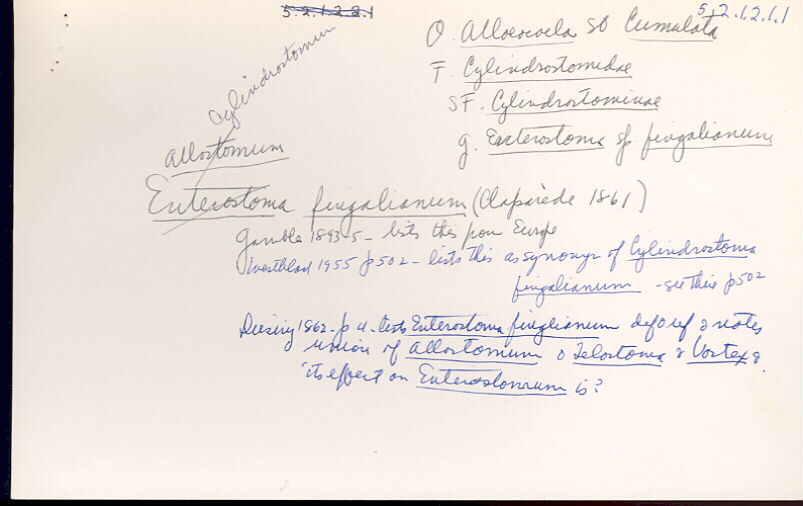 5.2.1.2.2.1
5.2.1.2.1.1
O. Alloeocoela SO Cumulata
F. Cylindrostomidae
SF. Cylindrostominae
g. Enterostoma sp fingalianum
Cylindrostomum
Allostomum
Enterostoma fingalianum (Claparède 1861)
Gamble 1893-5 - lists this from Europe
Westblad 1955 p502 - lists this as synonym of Cylindrostoma
fingalianum - see this p502
Diesing 1862 - p 4 - lists Enterostoma finglianum def & ref & notes
union of Allostomum & Telostoma & Vortex &
its effect on Enterostomum is?